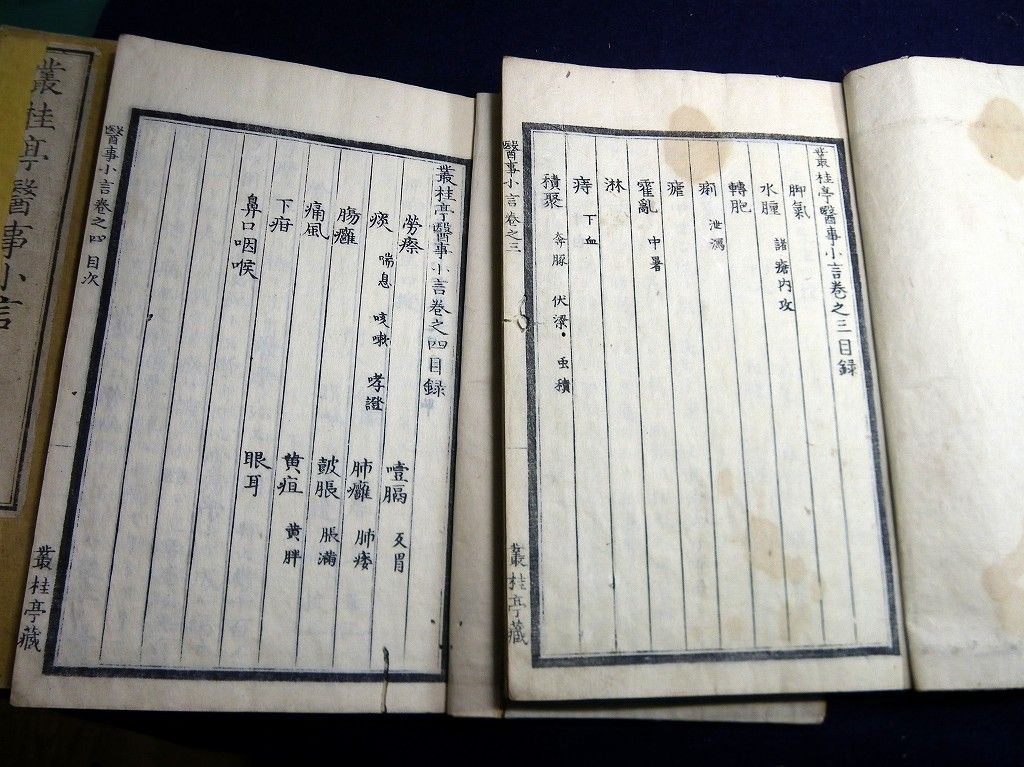 叢桂亭醫事小言卷之三目録
脚氣
水腫 諸瘡内攻
轉胞
痢 泄瀉
瘧
霍亂 中暑
淋
痔 下血
積聚 奔豚 伏梁 虫積
醫事小言卷之三
叢桂亭藏
叢桂亭醫事小言卷之四目録
勞瘵 噎膈 反胃
痰 喘息 咳嗽 哮證 肺癰 肺痿
腸癰 鼓脹 脹滿
痛風 黄疸 黄胖
下疳 眼耳
鼻口咽喉
醫事小言卷之四 目次
叢桂亭藏
叢桂亭醫事小言